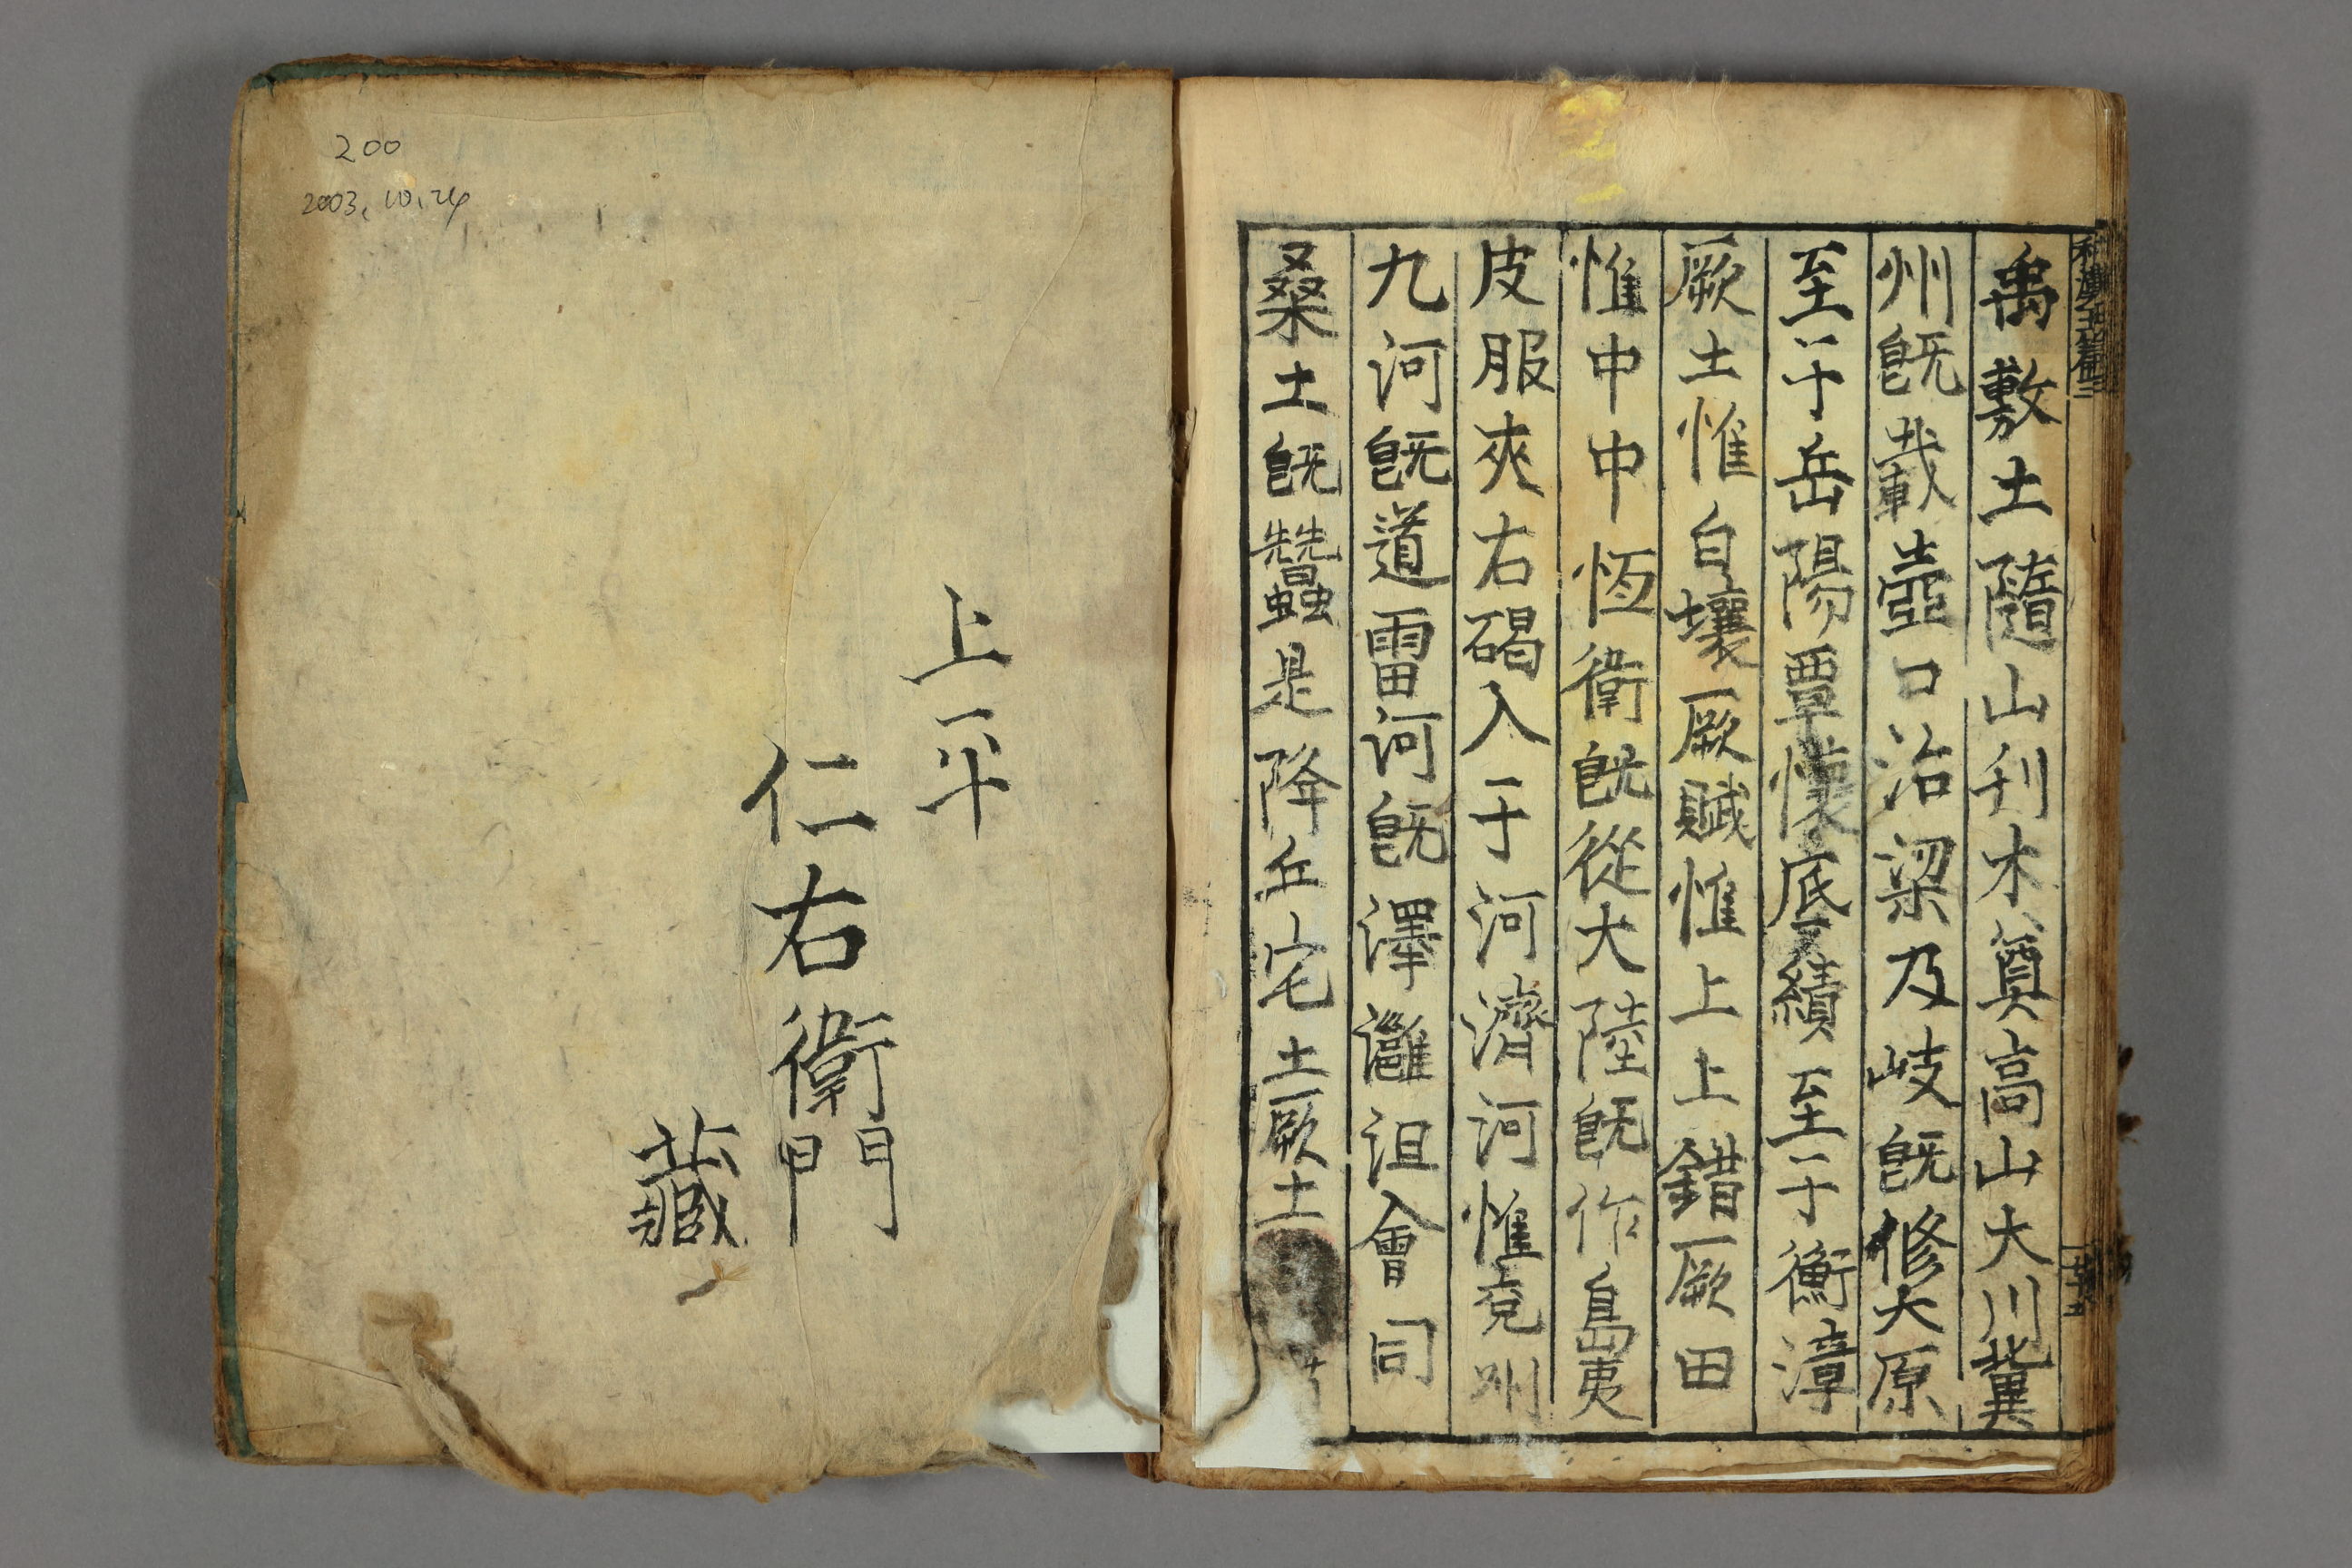 禹敷土隨山刋木奠高山大川冀
州旣載壺口治梁及岐旣修大原
至于岳陽覃懷厎績至于衡漳
厥土惟白壤厥賦惟上上錯厥田
惟中中恆衛旣從大陸旣作島夷
皮服夾右碣入于河濟河惟兗州
九河旣道雷河旣澤灉沮會同
桑土旣蠶是降丘宅土厥土
上平
仁右衛門
藏
200
2003.10.24